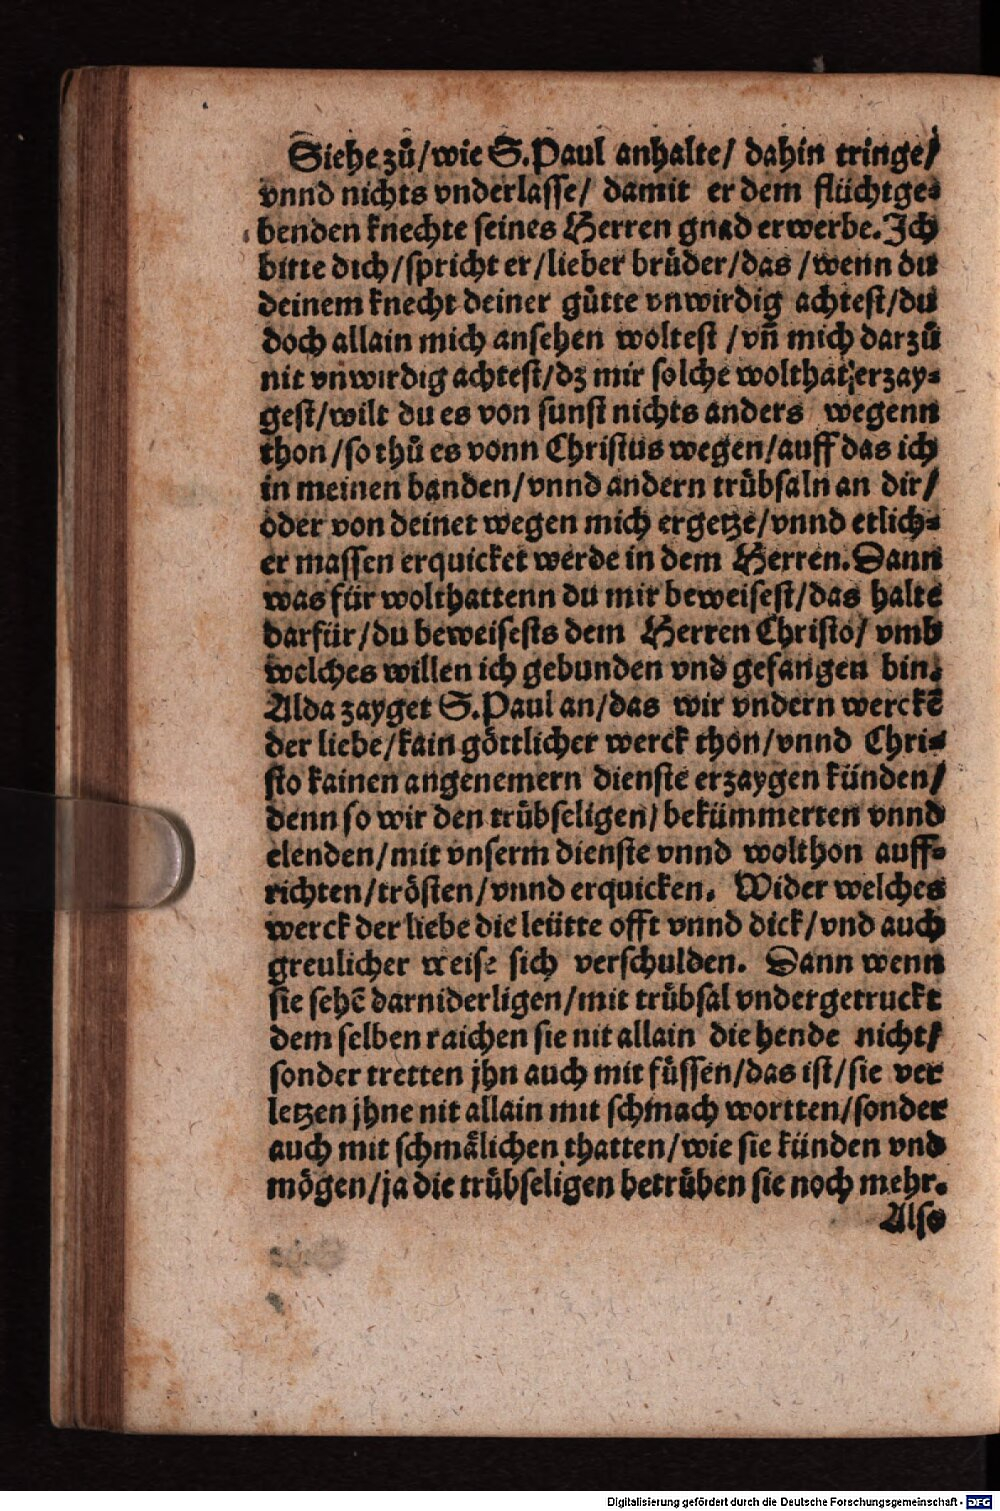 Siehe zů/wie S.Paul anhalte/ dahin tringe/
vnnd nichts vnderlasse/ damit er dem flüchtge-
benden knechte seines Herren gnad erwerbe. Ich
bitte dich/spricht er/lieber brůder/das /wenn du
deinem knecht deiner gůtte vnwirdig achtest/du
doch allain mich ansehen woltest /vn̄ mich darzů
nit vnwirdig achtest/dz mir solche wolthat erzay-
gest/wilt du es von sunst nichts anders wegenn
thon/so thů es vonn Christus wegen/auff das ich
in meinen banden/vnnd andern trůbsaln an dir/
oder von deinet wegen mich ergetze/vnnd etlich-
er massen erquicket werde in dem Herren. Dann
was für wolthattenn du mir beweisest/das halte
darfür/du beweisests dem Herren Christo/ vmb
welches willen ich gebunden vnd gefangen bin.
Alda zayget S.Paul an/das wir vndern werckē
der liebe/kain göttlicher werck thon/vnnd Chri-
sto kainen angenemern dienste erzaygen künden/
denn so wir den trůbseligen/bekümmerten vnnd
elenden/mit vnserm dienste vnnd wolthon auff-
richten/trösten/vnnd erquicken. Wider welches
werck der liebe die leütte offt vnnd dick/vnd auch
greulicher weise sich verschulden. Dann wenn
sie sehē darniderligen/mit trůbsal vndergetruckt
dem selben raichen sie nit allain die hende nicht/
sonder tretten jhn auch mit fůssen/das ist/sie ver
letzen jhne nit allain mit schmach wortten/sonder
auch mit schmälichen thatten/wie sie künden vnd
mögen/ja die trůbseligen betrůben sie noch mehr.
Also
Digitalisierung gefördert durch die Deutsche Forschungsgemeinschaft - DFG